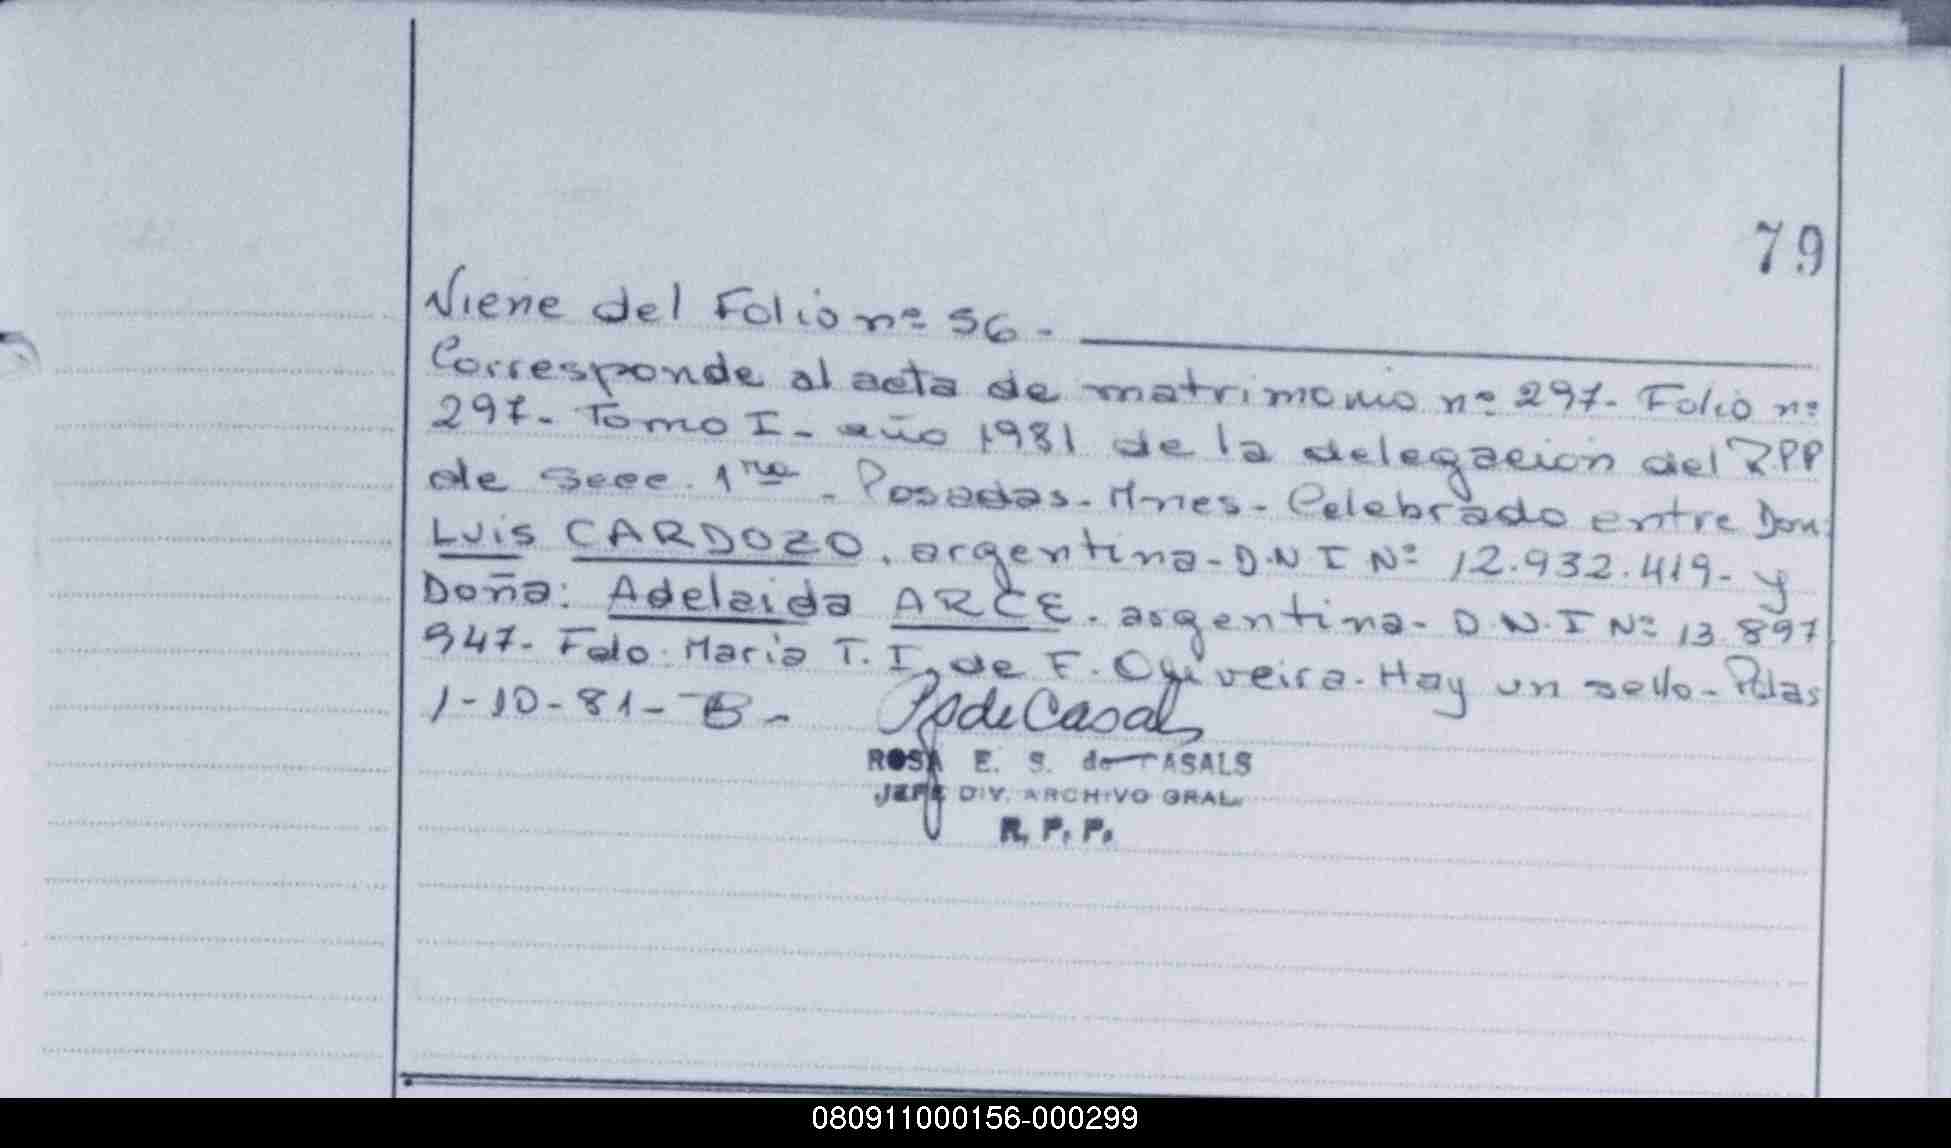 79
Viene del Folio nº 56 -
Corresponde al acta de matrimonio nº 297- Folio nº
297- Tomo I - año 1981 de la delegación del R.P.P
de Secc. 1ra - Posadas - Mnes - Celebrado entre Don:
Luis CARDOZO. argentina - D.N I Nº 12.932.419- y
Doña: Adelaida ARCE. argentina - D.N.I Nº 13.897
947- Fdo. Maria T. I. de F. Oliveira. Hay un sello - Pdas
1-10-81-
ROSA E. S. de CASALS
JEFE DIV. ARCHIVO GRAL.
R. P. P.
080911000156-000299